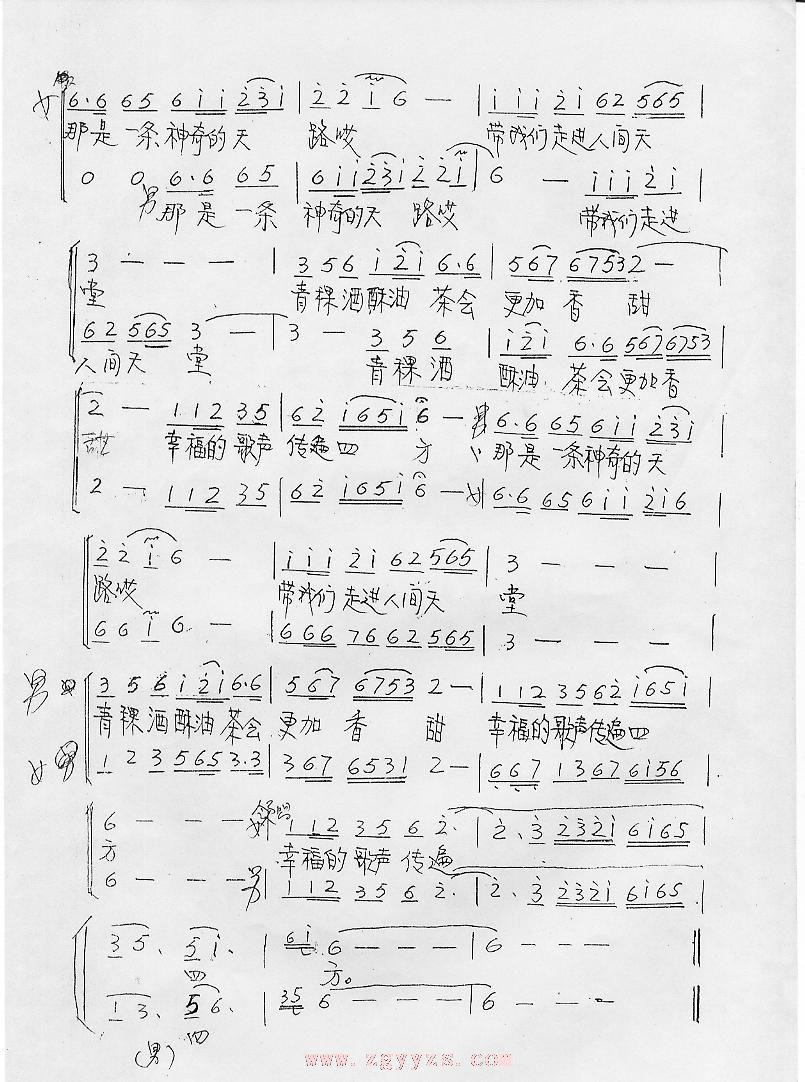 女 6·6 65 6i i 2̇3̇i | 2̇ 2̇ i 6 — | i i i 2̇ i 62 565 |
那是一条神奇的天 路哎 带我们走进人间天
0 0 6·6 65 | 6i i 2̇3̇i 2̇ 2̇ i | 6 — i i i 2̇ i |
男 那是一条 神奇的天 路哎 带我们走进
3 — — — | 3 5 6 i 2̇i 6·6 | 567 67532 — |
堂 青稞酒酥油 茶会 更加 香 甜
62 565 3 — | 3 — 3 5 6 | i2̇i 6·6 567 6753
人间天 堂 青稞酒 酥油 茶会更加香
2 — 112 35 | 62̇ i65i 6 — 男 | 6·6 65 6i i 2̇3̇i |
甜 幸福的歌声 传遍四 方 那是一条神奇的天
2 — 112 35 | 62̇ i65i 6 — 女 | 6·6 65 6i i 2̇i6
2̇ 2̇ i 6 — | i i i 2̇i 62 565 | 3 — — — |
路哎 带我们走进人间天 堂
6 6 i 6 — | 666 76 62 565 | 3 — — — |
男 3 5 6 i 2̇i 6·6 | 567 6753 2 — | 112 35 62̇ i65i |
青稞酒酥油茶会 更加 香 甜 幸福的歌声传遍四
女 1 2 3 565 3·3 | 367 6531 2 — | 667 13 67 6i56 |
6 — — — | 112 35 6 2̇· | 2̇· 3̇ 2̇3̇2̇i 6i65 |
方 幸福的歌声 传遍
6 — — — 男 | 112 35 6 2̇· | 2̇· 3̇ 2̇3̇2̇i 6i65 |
35· 5i· | 6i 6 — — — | 6 — — — ‖
四 方。
13· 56· | 35 6 — — — | 6 — — — ‖
四
(男)
www.zgyyzs.com